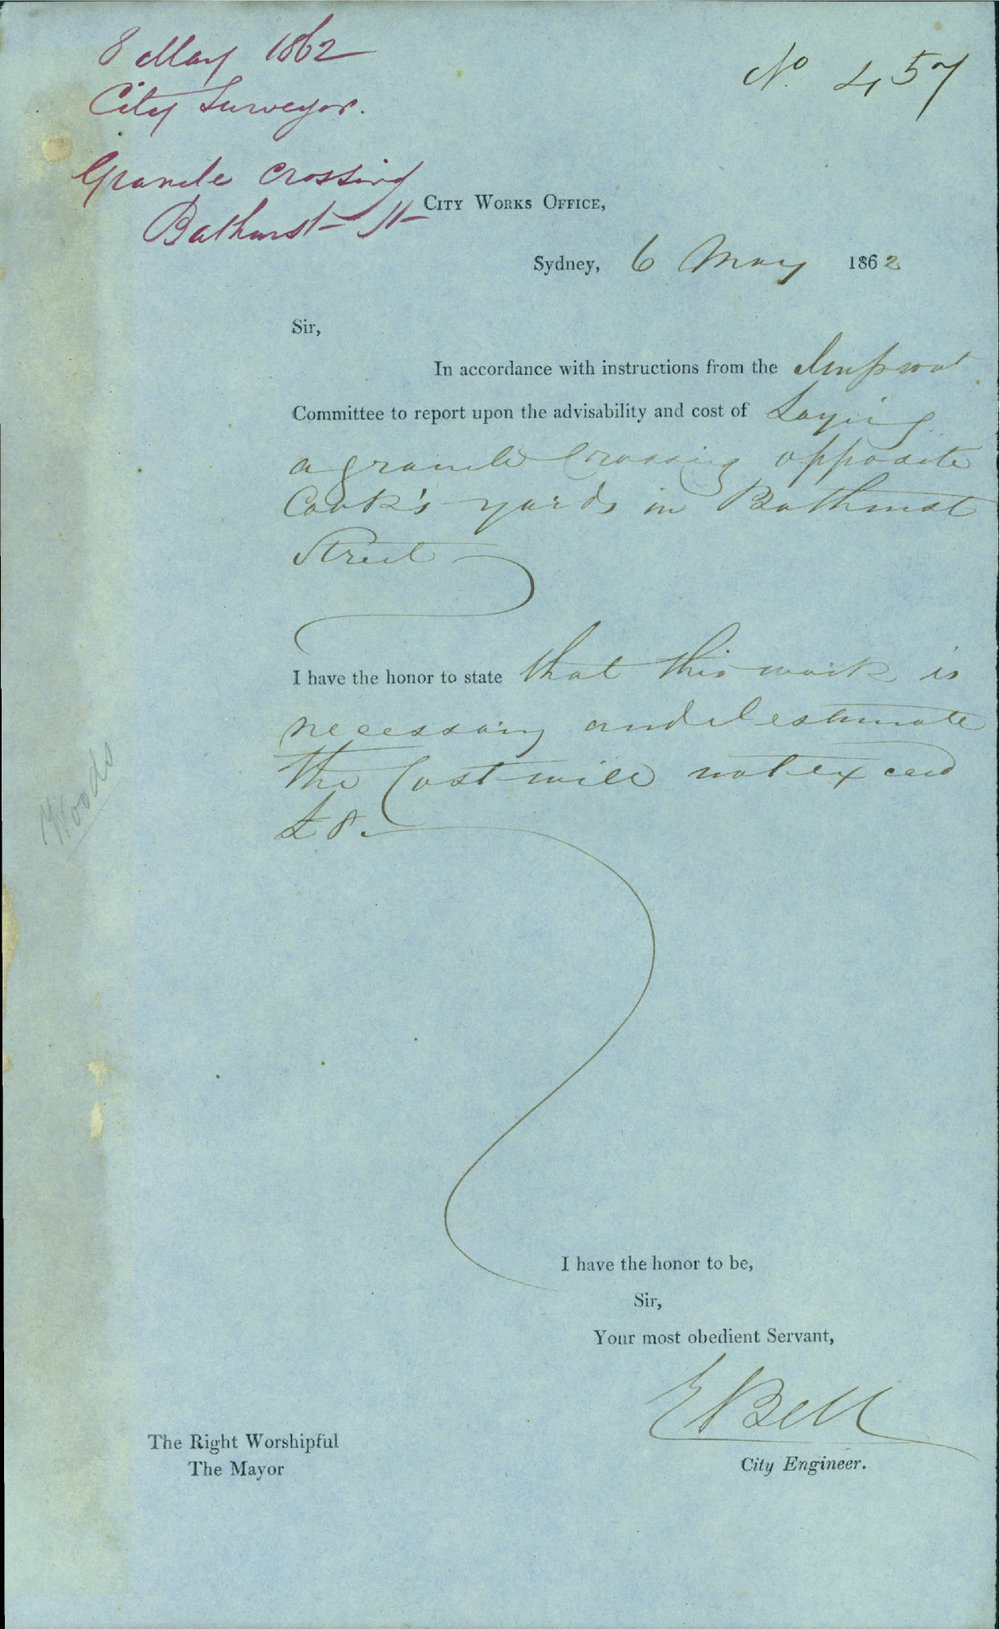 8 May 1862
City Surveyor.
Granite Crossing
Bathurst St
No. 457
CITY WORKS OFFICE,
Sydney, 6 May 1862
Sir,
In accordance with instructions from the Improvat
Committee to report upon the advisability and cost of Laying
a granite Crossing opposite
Cook's yards in Bathurst
Street
I have the honor to state that this work is
necessary and I estimate
the Cost will not exceed
£8.
Woods
I have the honor to be,
Sir,
Your most obedient Servant,
E Bell
City Engineer.
The Right Worshipful
The Mayor